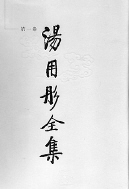 第一卷
湯用彤全集